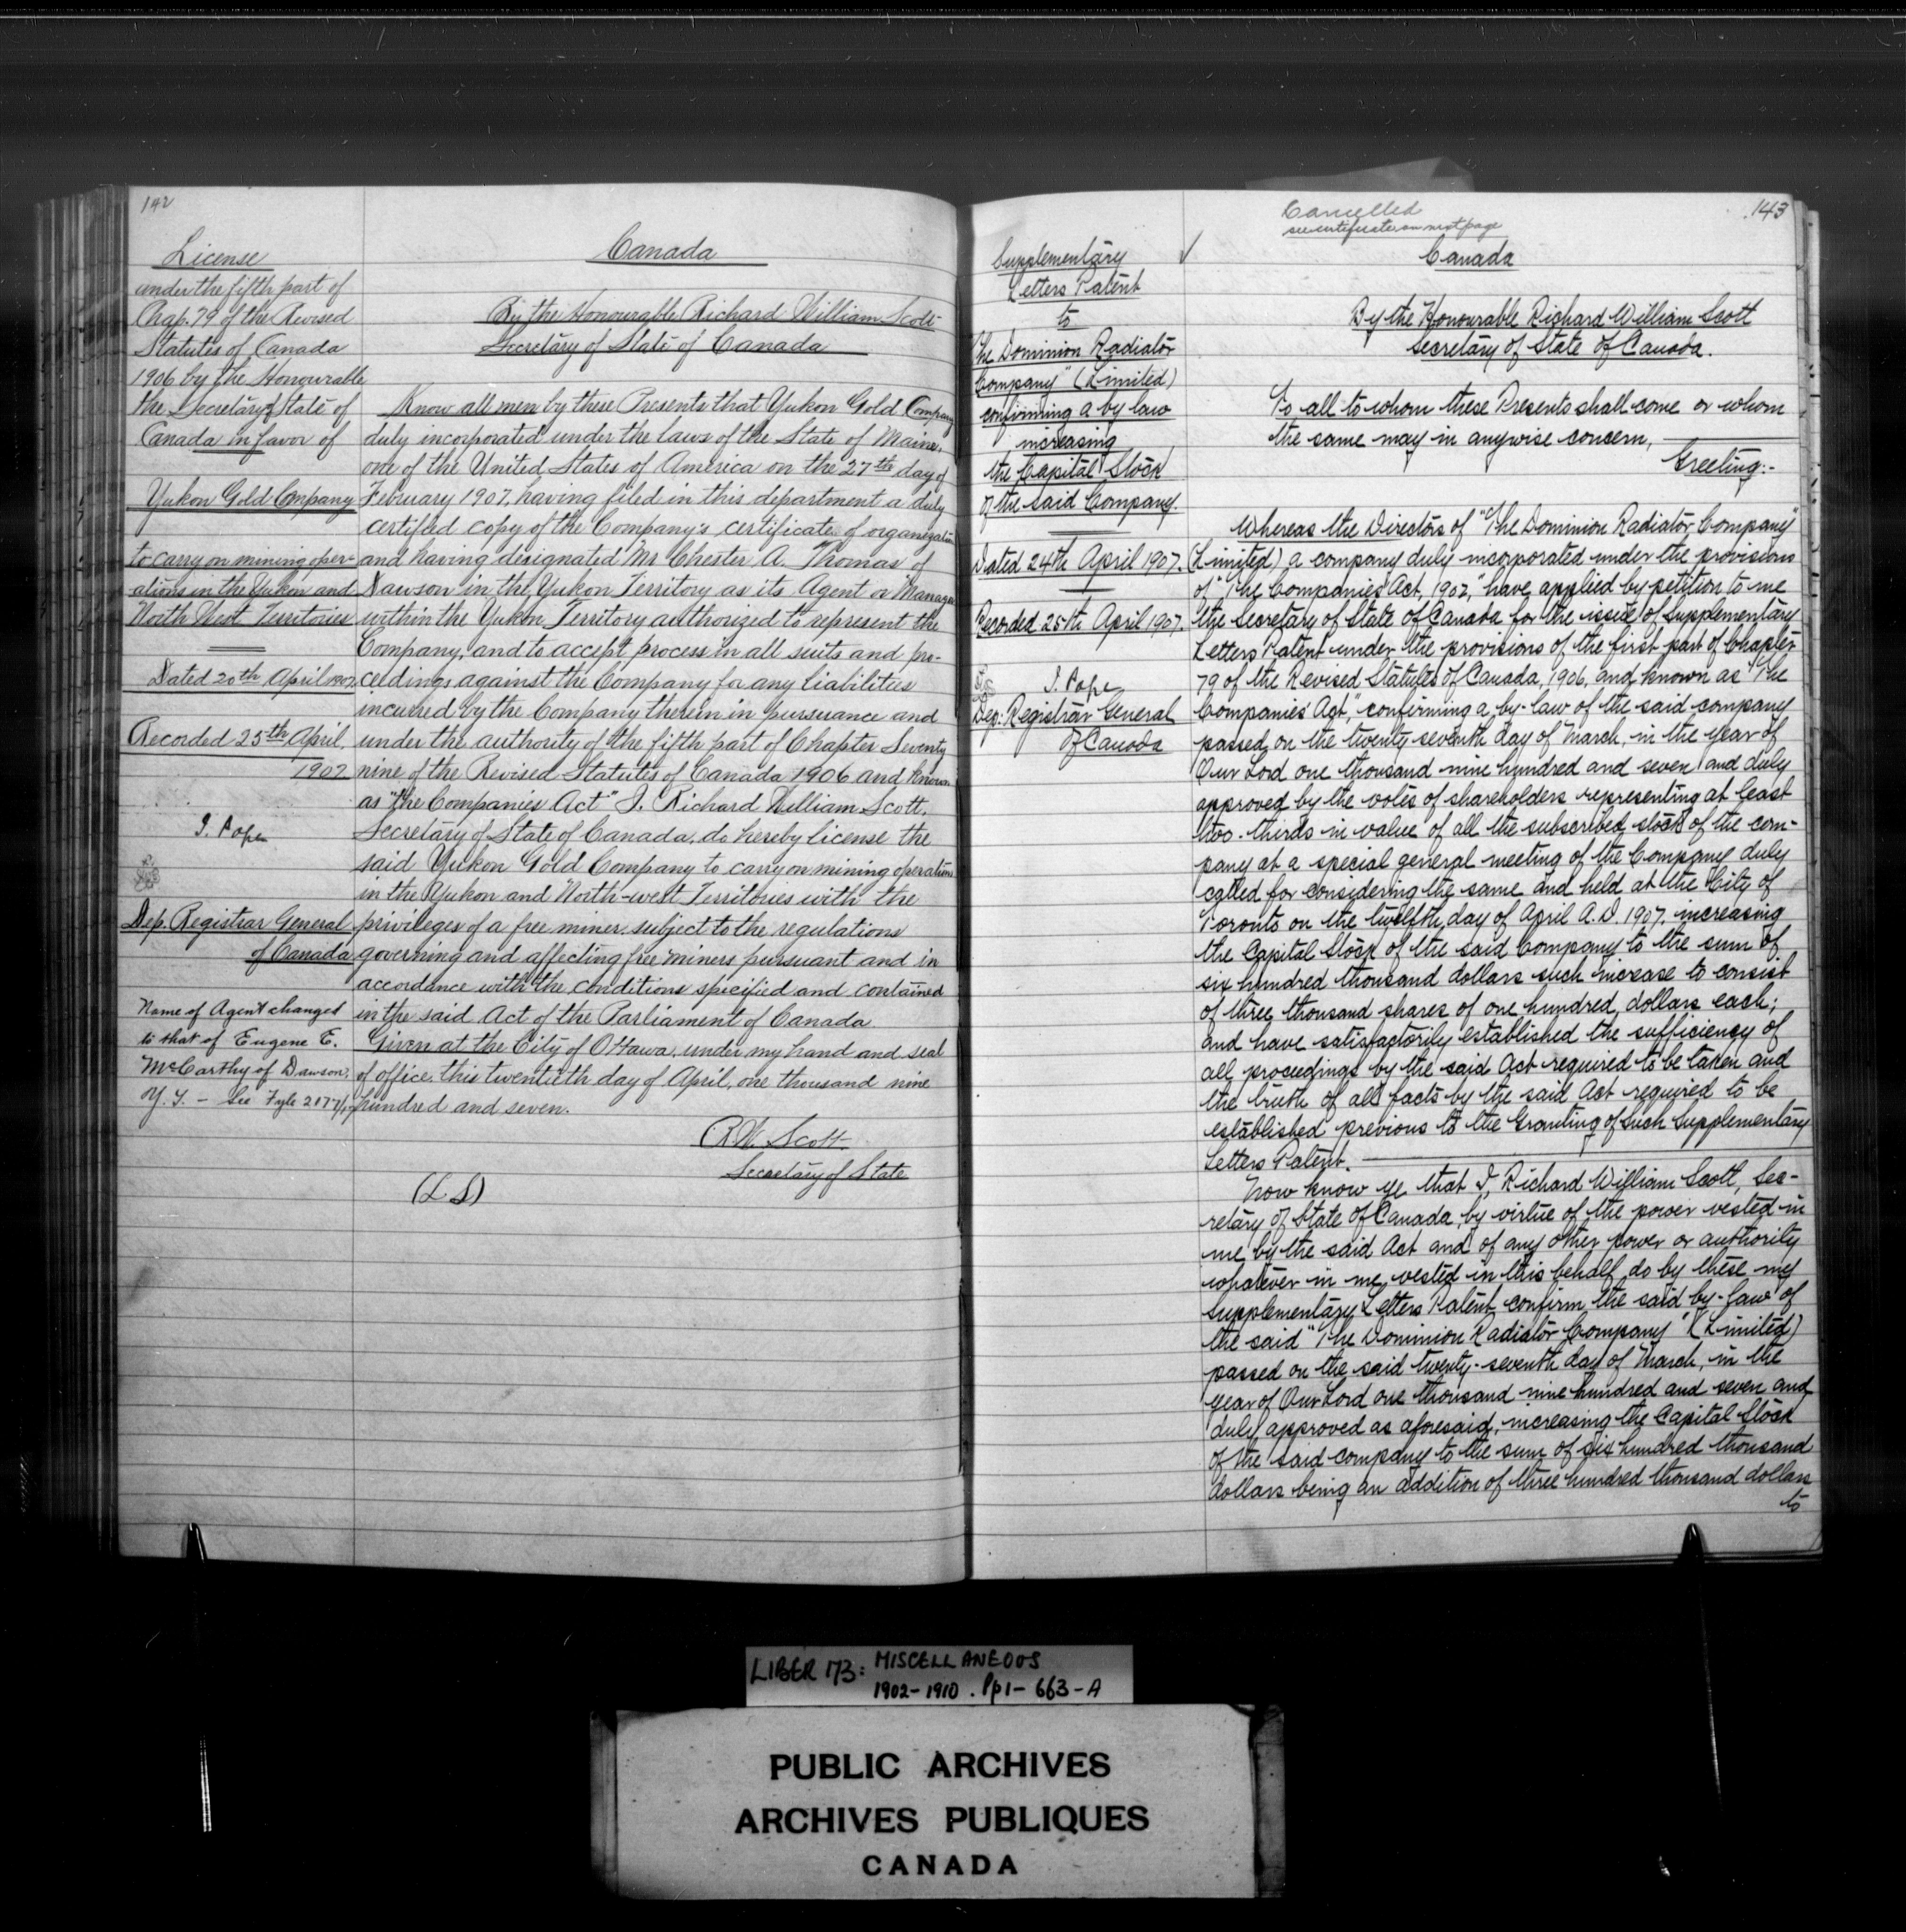 142
License
under the fifth part of
Chap. 79 of the Revised
Statutes of Canada
1906 by the Honourable
the Secretary of State of
Canada in favor of
Yukon Gold Company
to carry on mining oper-
ations in the Yukon and
North West Territories
Dated 20th April 1907.
Recorded 25th April.
1907
J. Pope
Dep. Registrar General
of Canada
Name of Agent changed
to that of Eugene E.
McCarthy of Dawson,
Y. T. - See Fyle 2177/17
Canada
By the Honourable Richard William Scott
Secretary of State of Canada
Know all men by these Presents that Yukon Gold Company
duly incorporated under the laws of the State of Maine,
one of the United States of America on the 27th day of
February 1907, having filed in this department a duly
certified copy of the Company's certificate of organization
and having designated Mr Chester A. Thomas of
Dawson in the Yukon Territory as its Agent or Manager
within the Yukon Territory authorized to represent the
Company, and to accept process in all suits and pro-
ceedings against the Company for any liabilities
incurred by the Company therein in pursuance and
under the authority of the fifth part of Chapter Seventy
nine of the Revised Statutes of Canada 1906 and known
as "the Companies Act" I, Richard William Scott,
Secretary of State of Canada, do hereby license the
said Yukon Gold Company to carry on mining operations
in the Yukon and North-west Territories with the
privileges of a free miner subject to the regulations
governing and affecting free miners pursuant and in
accordance with the conditions specified and contained
in the said Act of the Parliament of Canada
Given at the City of Ottawa, under my hand and seal
of office, this twentieth day of April, one thousand nine
hundred and seven.
R W. Scott
Secretary of State
(L S)
Cancelled
see certificate on next page
143
Supplementary
Letters Patent
to
The Dominion Radiator
Company" (Limited)
confirming a by law
increasing
the Capital Stock
of the said Company.
Dated 24th April 1907.
Recorded 25th April 1907.
J. Pope
Dep: Registrar General
of Canada
Canada
By the Honourable Richard William Scott
Secretary of State of Canada.
To all to whom these Presents shall come or whom
the same may in anywise concern,
Greeting:-
Whereas the Directors of "The Dominion Radiator Company"
(Limited) a company duly incorporated under the provisions
of "The Companies Act, 1902," have applied by petition to me
the Secretary of State of Canada for the issue of Supplementary
Letters Patent under the provisions of the first part of Chapter
79 of the Revised Statutes of Canada, 1906, and known as "The
Companies' Act," confirming a by-law of the said company
passed on the twenty seventh day of March, in the year of
Our Lord one thousand nine hundred and seven and duly
approved by the votes of shareholders representing at least
two-thirds in value of all the subscribed stock of the com-
pany at a special general meeting of the Company duly
called for considering the same and held at the City of
Toronto on the twelfth day of April A.D. 1907, increasing
the Capital Stock of the said Company to the sum of
six hundred thousand dollars such increase to consist
of three thousand shares of one hundred dollars each;
and have satisfactorily established the sufficiency of
all proceedings by the said Act required to be taken and
the truth of all facts by the said Act required to be
established previous to the Granting of such Supplementary
Letters Patent.
Now know ye that I, Richard William Scott, Sec-
retary of State of Canada, by virtue of the power vested in
me by the said Act and of any other power or authority
whatever in me vested in this behalf do by these my
Supplementary Letters Patent confirm the said by-law of
the said "The Dominion Radiator Company" (Limited)
passed on the said twenty-seventh day of March, in the
year of Our Lord one thousand nine hundred and seven and
duly approved as aforesaid, increasing the Capital Stock
of the said company to the sum of six hundred thousand
dollars being an addition of three hundred thousand dollars
to
LIBER 173: MISCELLANEOUS
1902-1910. Pp1-663-A
PUBLIC ARCHIVES
ARCHIVES PUBLIQUES
CANADA